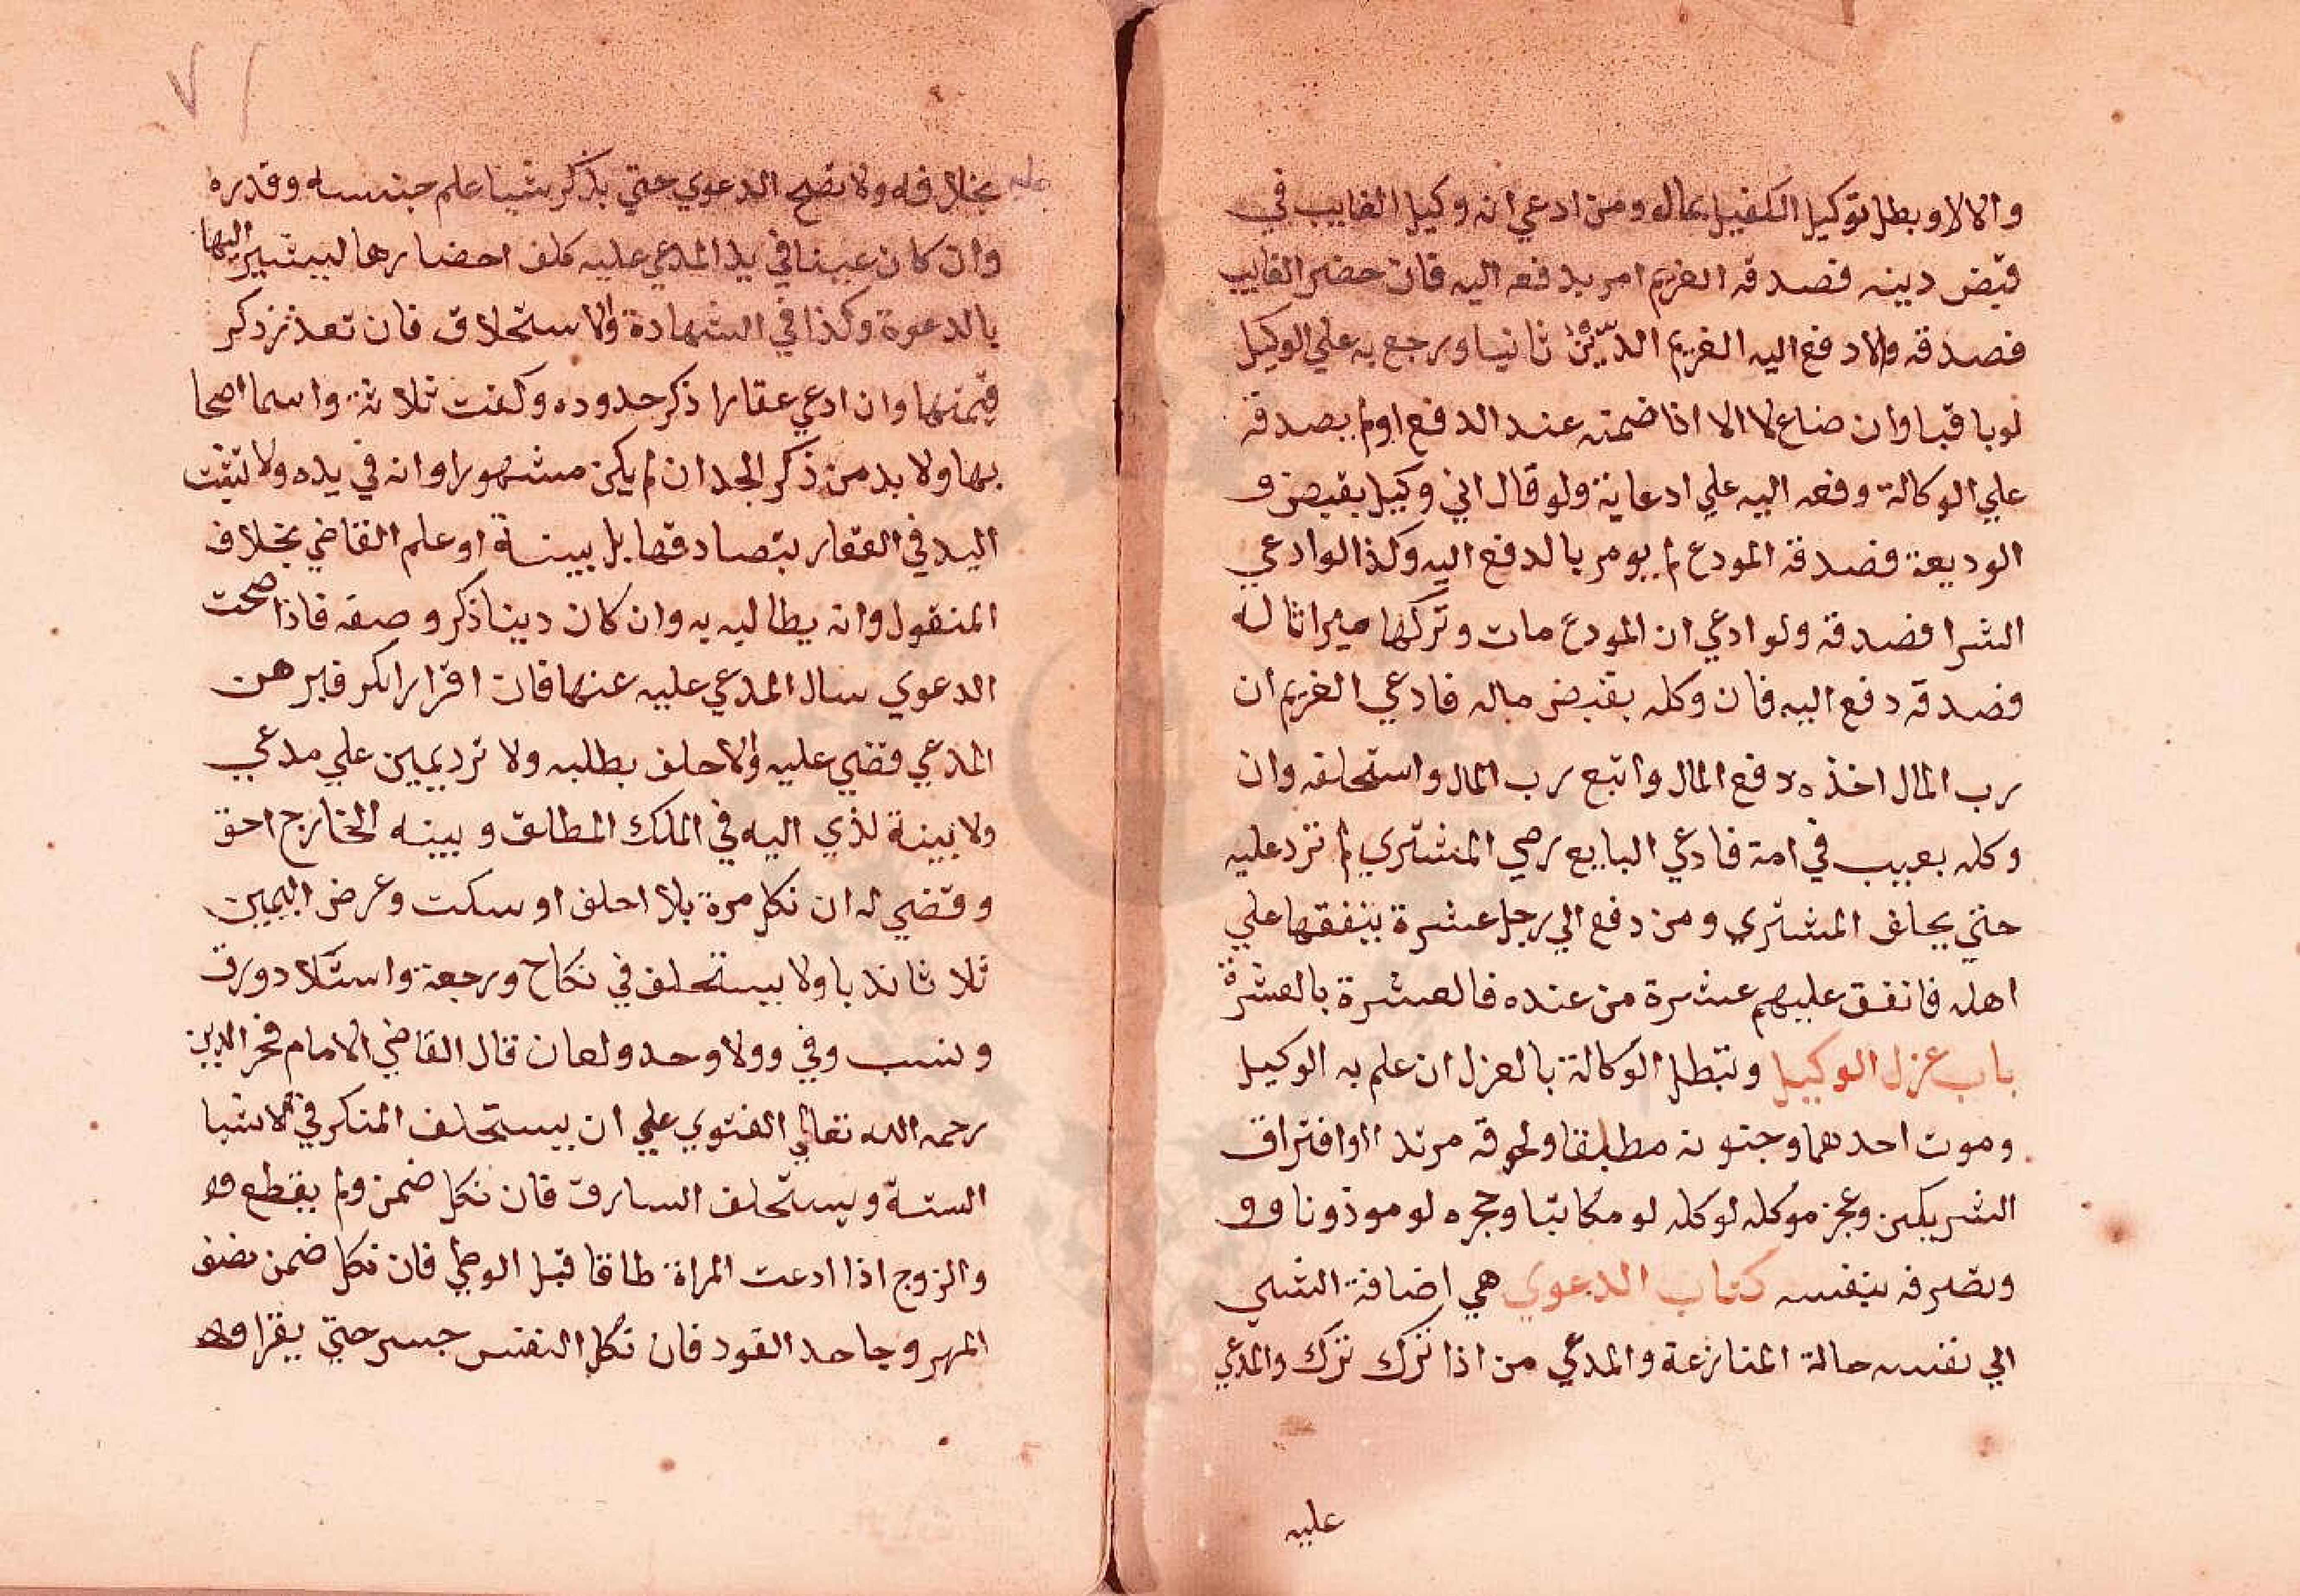 والا لا وبطل توكيل الكفيل بمال ومن ادعي انه وكيل الغايب في
قبض دينه فصدقه الغريم امر بدفعه اليه فان حضر الغايب
فصدقه والا دفع اليه الغريم الدين ثانيا ورجع به علي الوكيل
لو باقيا وان ضاع لا الا اذا ضمنه عند الدفع او لم يصدقه
علي الوكالة ودفعه اليه علي ادعايه ولو قال اني وكيل بقبض
الوديعة فصدقه المودع لم يومر بالدفع اليه وكذا لو ادعي
الشرا فصدقه ولو ادعي ان المودع مات وتركها ميراثا له
فصدقه دفع اليه فان وكله بقبض ماله فادعي الغريم ان
رب المال اخذه دفع المال واتبع رب المال واستحلفه وان
وكله بعيب في امة فادعي البايع رضي المشتري لم ترد عليه
حتي يحلف المشتري ومن دفع الي رجل عشرة ينفقها علي
اهله فانفق عليهم عشرة من عنده فالعشرة بالعشرة
باب عزل الوكيل وتبطل الوكالة بالعزل ان علم به الوكيل
وموت احدهما وجنونه مطبقا ولحوقه مرتدا وافتراق
الشريكين وعجز موكله لو كله لو مكاتبا وحجره لو موذونا
وتصرفه بنفسه كتاب الدعوي هي اضافة الشيي
الي نفسه حالة المنازعة والمدعي من اذا ترك ترك والمدعي
عليه
٧١
عليه بخلافه ولا تصح الدعوي حتي يذكر شيا علم جنسه وقدره
وان كان عينا في يد المدعي عليه كلف احضارها ليشير اليها
بالدعوة وكذا في الشهادة والاستحلاف فان تعذر ذكر
قيمتها وان ادعي عقارا ذكر حدوده وكفت ثلاثة واسما اصحا
بها ولا بد من ذكر الجد ان لم يكن مشهورا وانه في يده ولا تثبت
اليد في العقار بتصادقها بل ببينة او علم القاضي بخلاف
المنقول وانه يطالبه به وان كان دينا ذكر وصفه فاذا صحت
الدعوي سال المدعي عليه عنها فان اقر او انكر فبرهن
المدعي قضي عليه والا حلف بطلبه ولا ترد يمين علي مدعي
ولا بينة لذي اليه في الملك المطلق وبينه الخارج احق
وقضي له ان نكل مرة بلا احلف او سكت وعرض اليمين
ثلاثا ندبا ولا يستحلف في نكاح ورجعة واستلاد ورق
ونسب وفي وولا وحد ولعان قال القاضي الامام فخر الدين
رحمه الله تعالي الفتوي علي ان يستحلف المنكر في الاشيا
الستة ويستحلف السارق فان نكل ضمن ولم يقطع
والزوج اذا ادعت المراة طلاقا قبل الوطي فان نكل ضمن نصف
المهر وجاحد القود فان نكل النفس حبس حتي يقر او